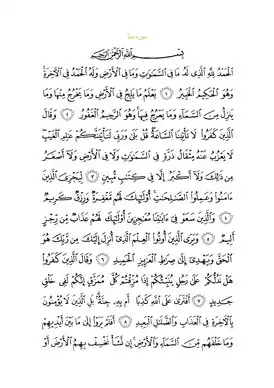 سورة سبأ
بِسْمِ اللَّهِ الرَّحْمَٰنِ الرَّحِيمِ
الْحَمْدُ لِلَّهِ الَّذِى لَهُ مَا فِى السَّمَٰوَٰتِ وَمَا فِى الْأَرْضِ وَلَهُ الْحَمْدُ فِى الْءَاخِرَةِ
وَهُوَ الْحَكِيمُ الْخَبِيرُ ١ يَعْلَمُ مَا يَلِجُ فِى الْأَرْضِ وَمَا يَخْرُجُ مِنْهَا وَمَا
يَنزِلُ مِنَ السَّمَآءِ وَمَا يَعْرُجُ فِيهَا وَهُوَ الرَّحِيمُ الْغَفُورُ ٢ وَقَالَ
الَّذِينَ كَفَرُوا۟ لَا تَأْتِينَا السَّاعَةُ قُلْ بَلَىٰ وَرَبِّى لَتَأْتِيَنَّكُمْ عَٰلِمِ الْغَيْبِ
لَا يَعْزُبُ عَنْهُ مِثْقَالُ ذَرَّةٍ فِى السَّمَٰوَٰتِ وَلَا فِى الْأَرْضِ وَلَآ أَصْغَرُ
مِن ذَٰلِكَ وَلَآ أَكْبَرُ إِلَّا فِى كِتَٰبٍ مُّبِينٍ ٣ لِّيَجْزِىَ الَّذِينَ
ءَامَنُوا۟ وَعَمِلُوا۟ الصَّٰلِحَٰتِ أُو۟لَٰٓئِكَ لَهُم مَّغْفِرَةٌ وَرِزْقٌ كَرِيمٌ
٤ وَالَّذِينَ سَعَوْ فِىٓ ءَايَٰتِنَا مُعَٰجِزِينَ أُو۟لَٰٓئِكَ لَهُمْ عَذَابٌ مِّن رِّجْزٍ
أَلِيمٌ ٥ وَيَرَى الَّذِينَ أُوتُوا۟ الْعِلْمَ الَّذِىٓ أُنزِلَ إِلَيْكَ مِن رَّبِّكَ هُوَ
الْحَقَّ وَيَهْدِىٓ إِلَىٰ صِرَٰطِ الْعَزِيزِ الْحَمِيدِ ٦ وَقَالَ الَّذِينَ كَفَرُوا۟
هَلْ نَدُلُّكُمْ عَلَىٰ رَجُلٍ يُنَبِّئُكُمْ إِذَا مُزِّقْتُمْ كُلَّ مُمَزَّقٍ إِنَّكُمْ لَفِى خَلْقٍ
جَدِيدٍ ٧ أَفْتَرَىٰ عَلَى اللَّهِ كَذِبًا أَم بِهِ جِنَّةٌ بَلِ الَّذِينَ لَا يُؤْمِنُونَ
بِالْءَاخِرَةِ فِى الْعَذَابِ وَالضَّلَٰلِ الْبَعِيدِ ٨ أَفَلَمْ يَرَوْا۟ إِلَىٰ مَا بَيْنَ أَيْدِيهِمْ
وَمَا خَلْفَهُم مِّنَ السَّمَآءِ وَالْأَرْضِ إِن نَّشَأْ نَخْسِفْ بِهِمُ الْأَرْضَ أَوْ